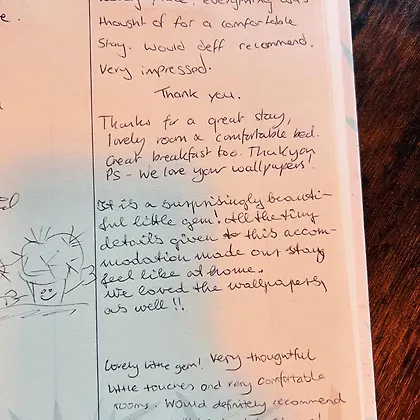 e.
lovely place, everything was
thought of for a comfortable
stay. Would deff recommend.
Very impressed.
Thank you.
Thanks for a great stay,
lovely room & comfortable bed.
Great breakfast too. Thankyou
PS - We love your wallpapers!
It is a surprisingly beauti-
ful little gem! All the tiny
details given to this accom-
modation made our stay
feel like at home.
We loved the wallpapers,
as well!!
Lovely little gem! Very thoughtful
little touches and very comfortable
rooms. Would definitely recommend